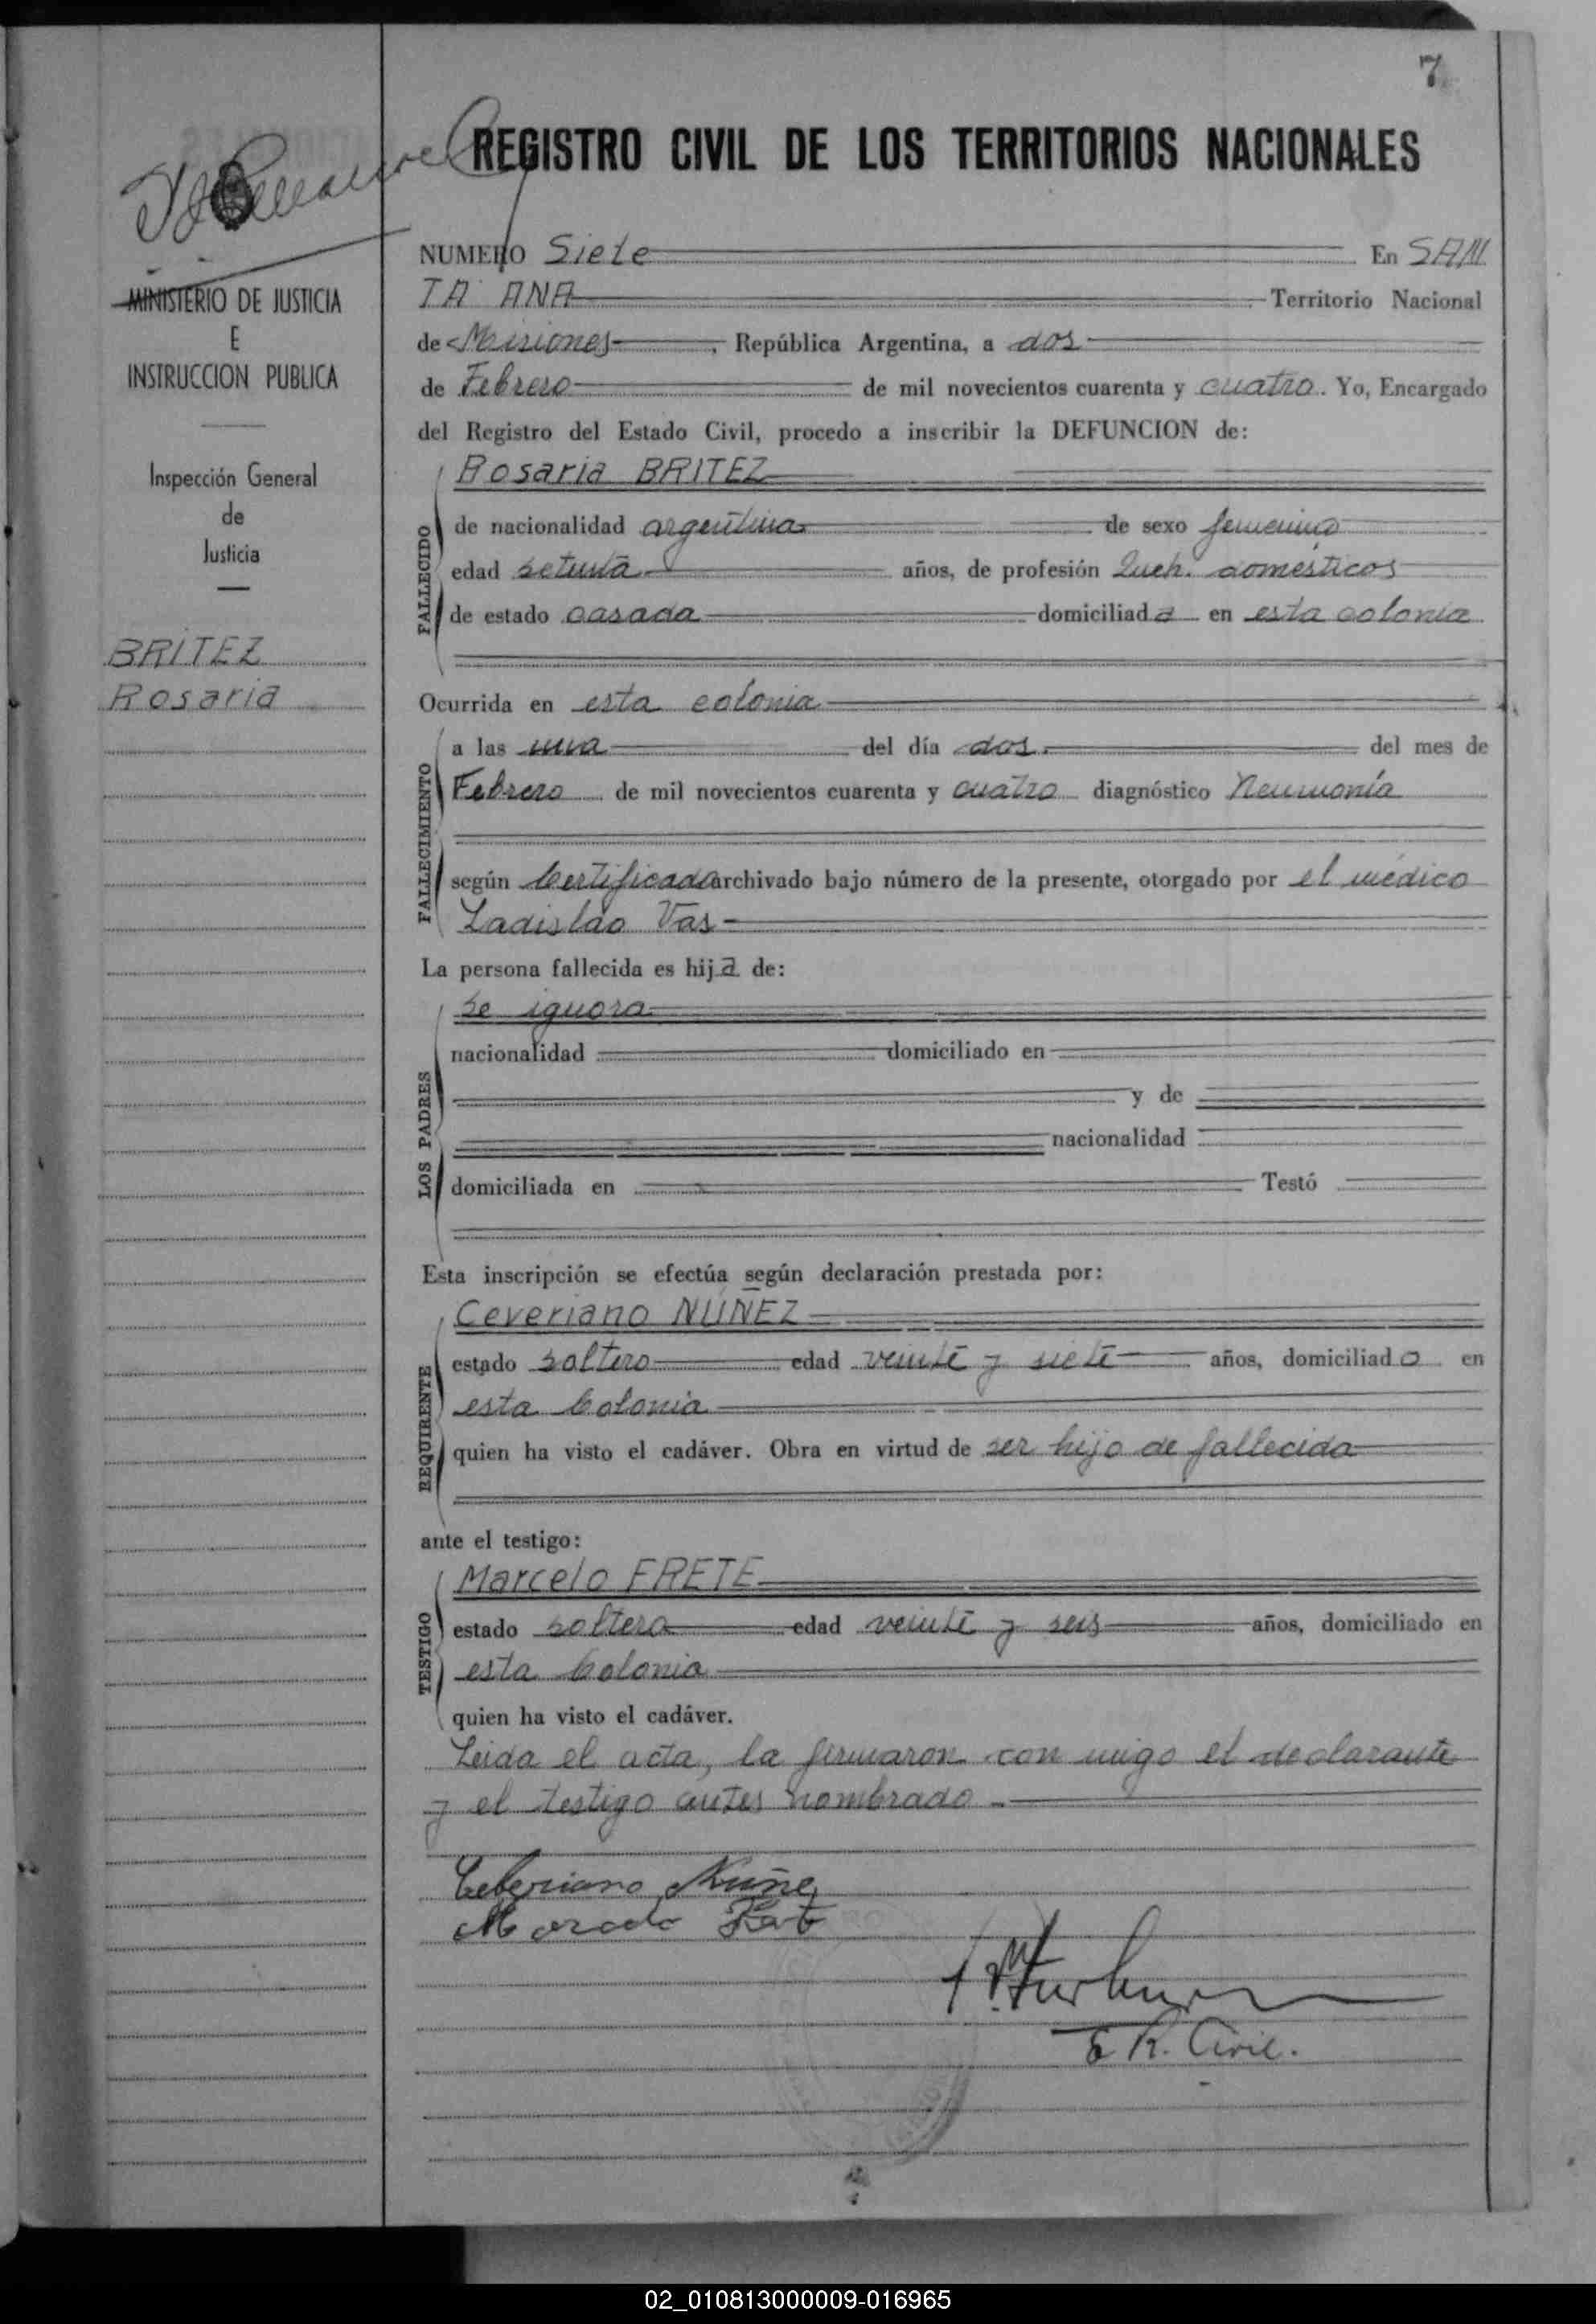 7
REGISTRO CIVIL DE LOS TERRITORIOS NACIONALES
MINISTERIO DE JUSTICIA
E
INSTRUCCION PUBLICA
Inspección General
de
Justicia
BRITEZ
Rosaria
NUMERO Siete En SAN
TA ANA Territorio Nacional
de Misiones, República Argentina, a dos
de Febrero de mil novecientos cuarenta y cuatro. Yo, Encargado
del Registro del Estado Civil, procedo a inscribir la DEFUNCION de:
FALLECIDO
Rosaria BRITEZ
de nacionalidad argentina de sexo femenino
edad setenta años, de profesión Queh. domésticos
de estado casada domiciliada en esta colonia
Ocurrida en esta colonia
FALLECIMIENTO
a las una del día dos. del mes de
Febrero de mil novecientos cuarenta y cuatro diagnóstico Neumonía
según Certificado archivado bajo número de la presente, otorgado por el médico
Ladislao Vas
La persona fallecida es hija de:
LOS PADRES
se ignora
nacionalidad domiciliado en
y de
nacionalidad
domiciliada en Testó
Esta inscripción se efectúa según declaración prestada por:
REQUIRENTE
Ceveriano NUÑEZ
estado soltero edad veinte y siete años, domiciliado en
esta Colonia
quien ha visto el cadáver. Obra en virtud de ser hijo de fallecida
ante el testigo:
TESTIGO
Marcelo FRETE
estado soltero edad veinte y seis años, domiciliado en
esta Colonia
quien ha visto el cadáver.
Leida el acta, la firmaron con migo el declarante
y el testigo antes nombrado
Ceberiano Nuñez
Marcelo Frete
E R. Civil.
02_010813000009-016965